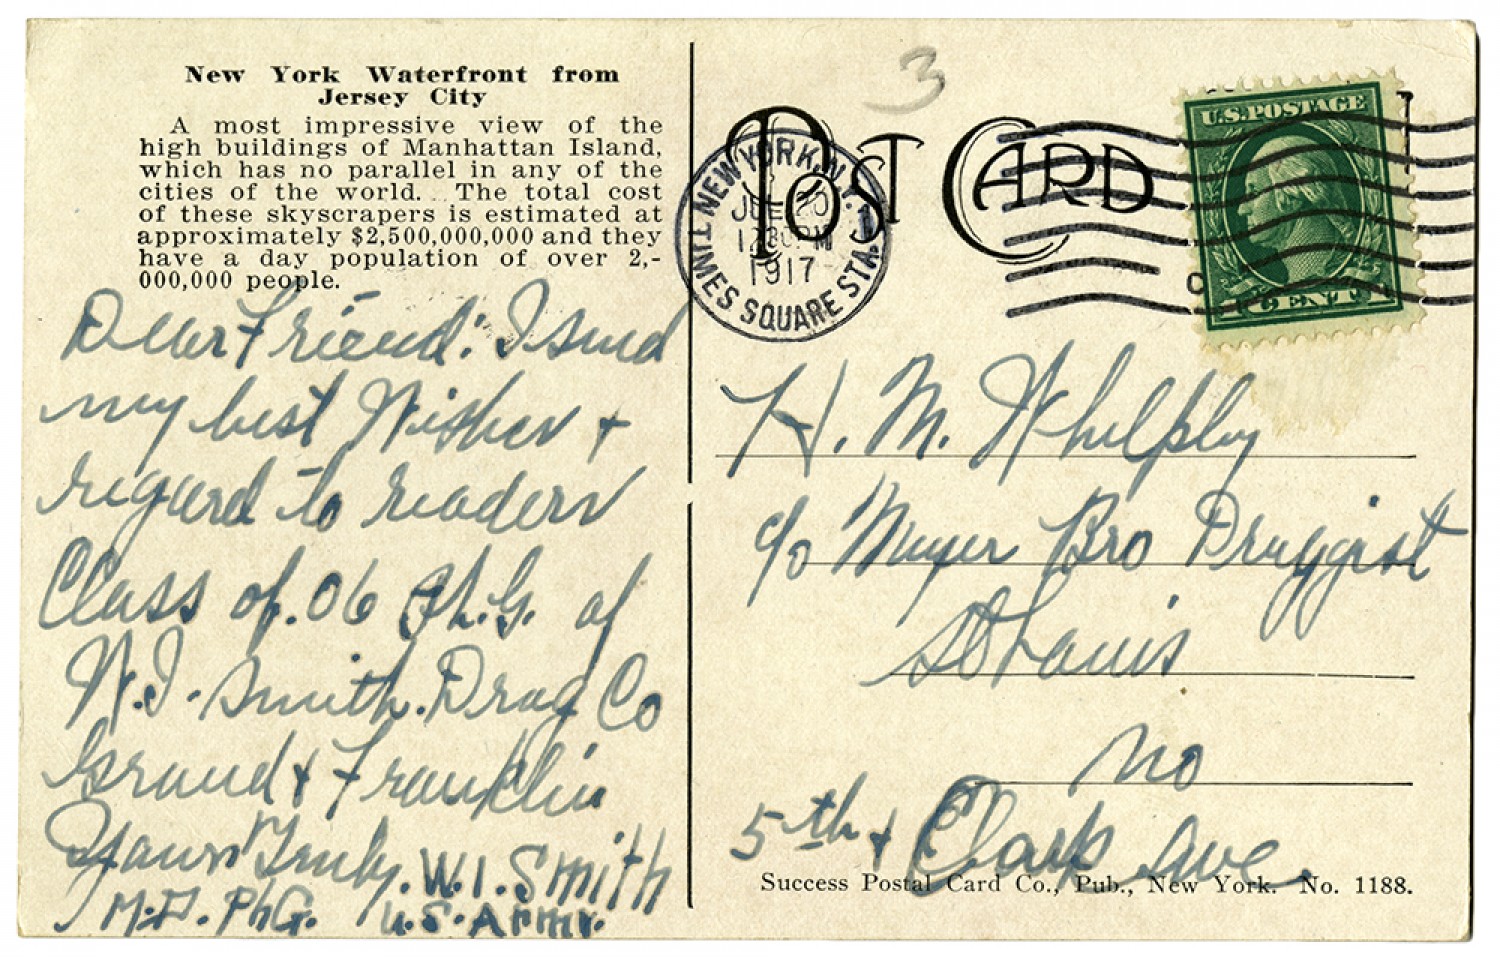 New York Waterfront from
Jersey City
A most impressive view of the
high buildings of Manhattan Island,
which has no parallel in any of the
cities of the world. The total cost
of these skyscrapers is estimated at
approximately $2,500,000,000 and they
have a day population of over 2,-
000,000 people.
Dear Friend: I send
my best Wishes &
regard to readers
Class of. 06 Ph.G. of
W.I. Smith. Drug Co
Grand & Franklin
Yours Truly. W.I. Smith
M.D. PhG. U.S. Army.
3
POST CARD
NEW YORK, N.Y.
JUL 20
12 30 PM
1917
TIMES SQUARE STA.
U.S. POSTAGE
1 CENT 1
H. M. Whelpley
c/o Meyer Bro Druggist
St Louis
Mo
5th & Clark Ave.
Success Postal Card Co., Pub., New York. No. 1188.